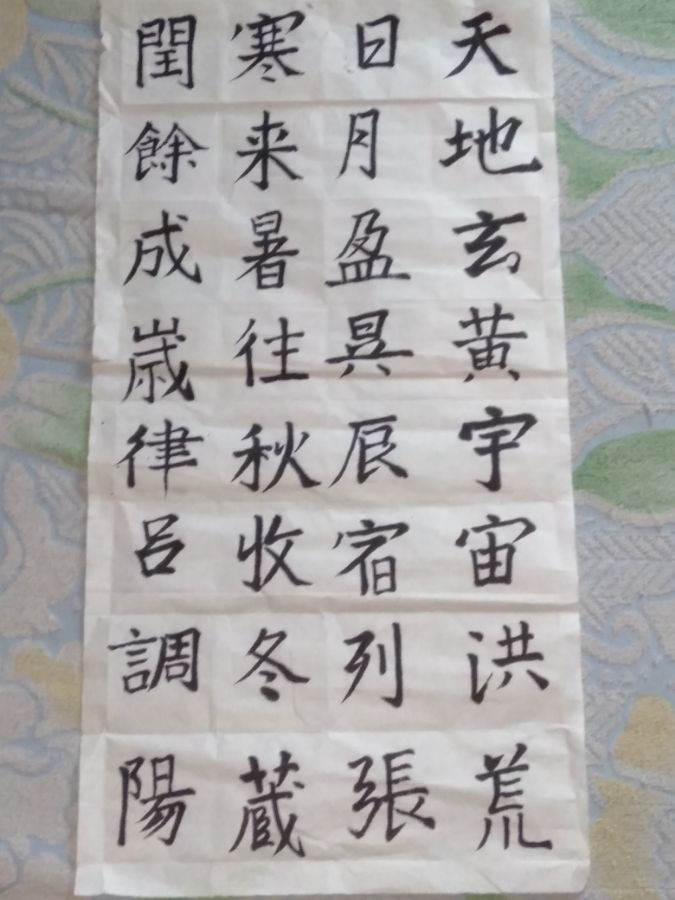 天地玄黄宇宙洪荒
日月盈昃辰宿列張
寒来暑往秋收冬蔵
閏餘成歳律呂調陽